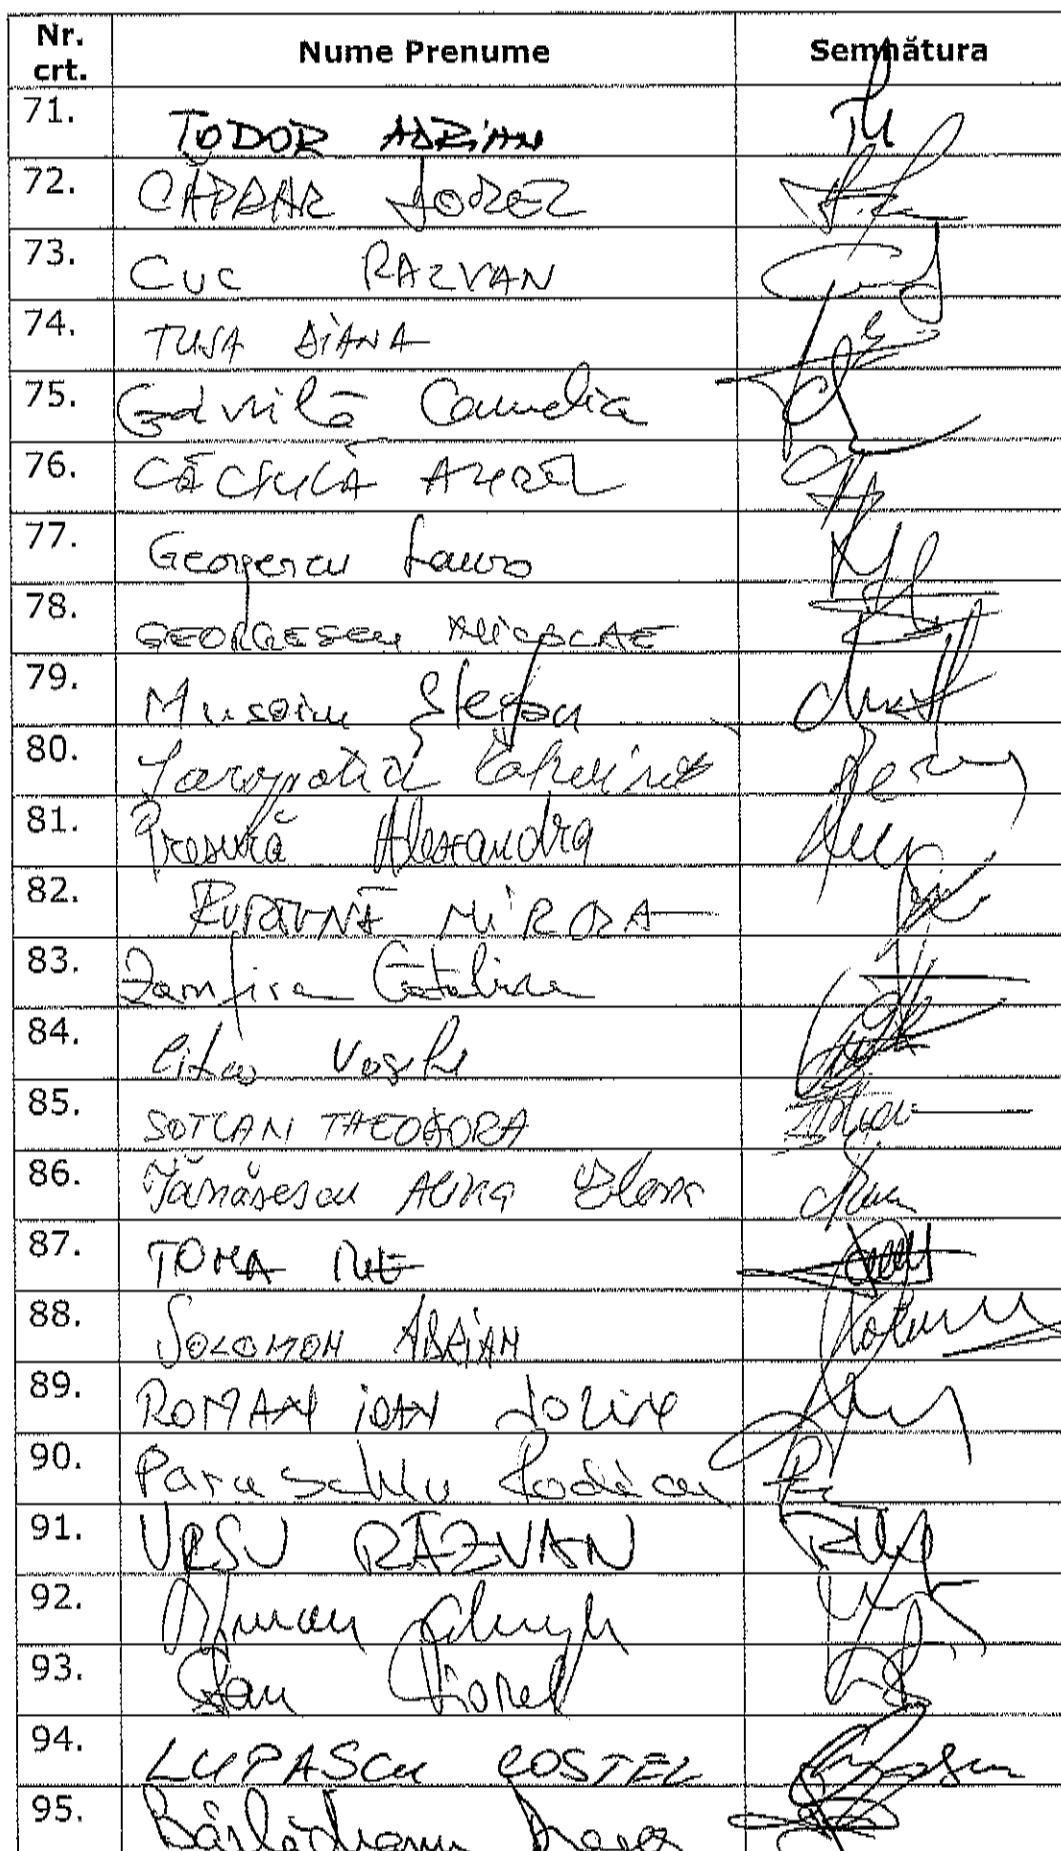 Nr. crt. Nume Prenume Semnătura
71. TODOR ADRIAN
72. CĂPRAR DOREL
73. CUC RAZVAN
74. TUȘA DIANA
75. Gavrilă Camelia
76. CĂCIULĂ AUREL
77. Georgescu Laura
78. GEORGESCU NICOLAE
79. Musoiu Ștefan
80.
81. Presură Alexandra
82. MIRCEA
83. Zamfira Catalina
84. Citea Vasile
85. SOTCAN THEODORA
86. Tănăsescu Alina Elena
87. TOMA ILIE
88. SOLOMON ADRIAN
89. ROMAN IOAN SORIN
90. Paraschiv Rodica
91. URSU RĂZVAN
92.
93. Stan Viorel
94. LUPASCU COSTEL
95.